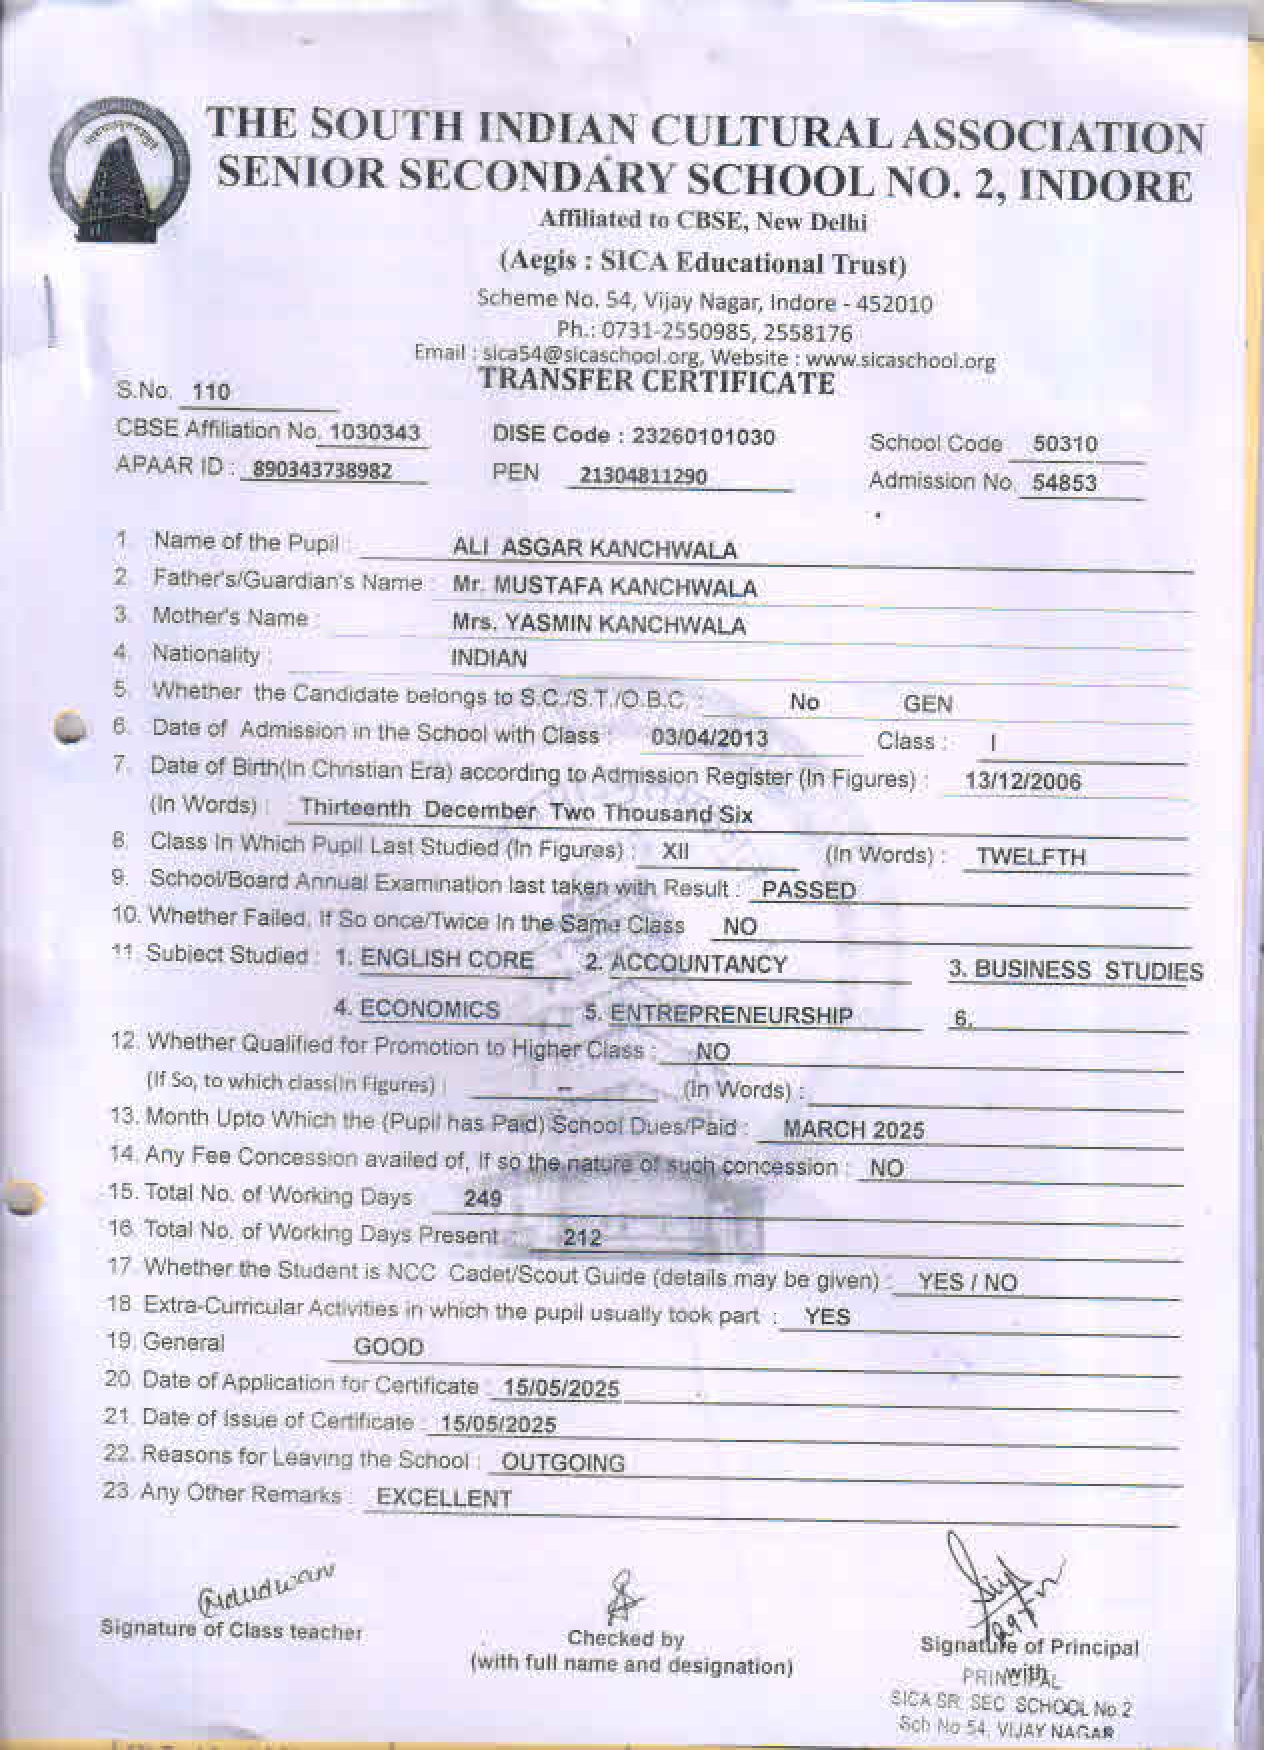 THE SOUTH INDIAN CULTURAL ASSOCIATION
SENIOR SECONDARY SCHOOL NO. 2, INDORE
Affiliated to CBSE, New Delhi
(Aegis : SICA Educational Trust)
Scheme No. 54, Vijay Nagar, Indore - 452010
Ph.: 0731-2550985, 2558176
Email : sica54@sicaschool.org, Website : www.sicaschool.org
TRANSFER CERTIFICATE
S.No. 110
CBSE Affiliation No. 1030343 DISE Code : 23260101030 School Code 50310
APAAR ID : 890343738982 PEN 21304811290 Admission No. 54853
1. Name of the Pupil : ALI ASGAR KANCHWALA
2. Father's/Guardian's Name : Mr. MUSTAFA KANCHWALA
3. Mother's Name : Mrs. YASMIN KANCHWALA
4. Nationality : INDIAN
5. Whether the Candidate belongs to S.C./S.T./O.B.C. : No GEN
6. Date of Admission in the School with Class : 03/04/2013 Class : I
7. Date of Birth(In Christian Era) according to Admission Register (In Figures) : 13/12/2006
(In Words) : Thirteenth December Two Thousand Six
8. Class In Which Pupil Last Studied (In Figures) : XII (In Words) : TWELFTH
9. School/Board Annual Examination last taken with Result : PASSED
10. Whether Failed, If So once/Twice In the Same Class NO
11. Subject Studied : 1. ENGLISH CORE 2. ACCOUNTANCY 3. BUSINESS STUDIES
4. ECONOMICS 5. ENTREPRENEURSHIP 6.
12. Whether Qualified for Promotion to Higher Class : NO
(If So, to which class(In Figures) : -- (In Words) :
13. Month Upto Which the (Pupil has Paid) School Dues/Paid : MARCH 2025
14. Any Fee Concession availed of, If so the nature of such concession : NO
15. Total No. of Working Days 249
16. Total No. of Working Days Present : 212
17. Whether the Student is NCC Cadet/Scout Guide (details may be given) : YES / NO
18. Extra-Curricular Activities in which the pupil usually took part : YES
19. General GOOD
20. Date of Application for Certificate : 15/05/2025
21. Date of Issue of Certificate : 15/05/2025
22. Reasons for Leaving the School : OUTGOING
23. Any Other Remarks : EXCELLENT
Signature of Class teacher
Checked by
(with full name and designation)
Signature of Principal
with
PRINCIPAL
SICA SR. SEC. SCHOOL No.2
Sch No 54, VIJAY NAGAR